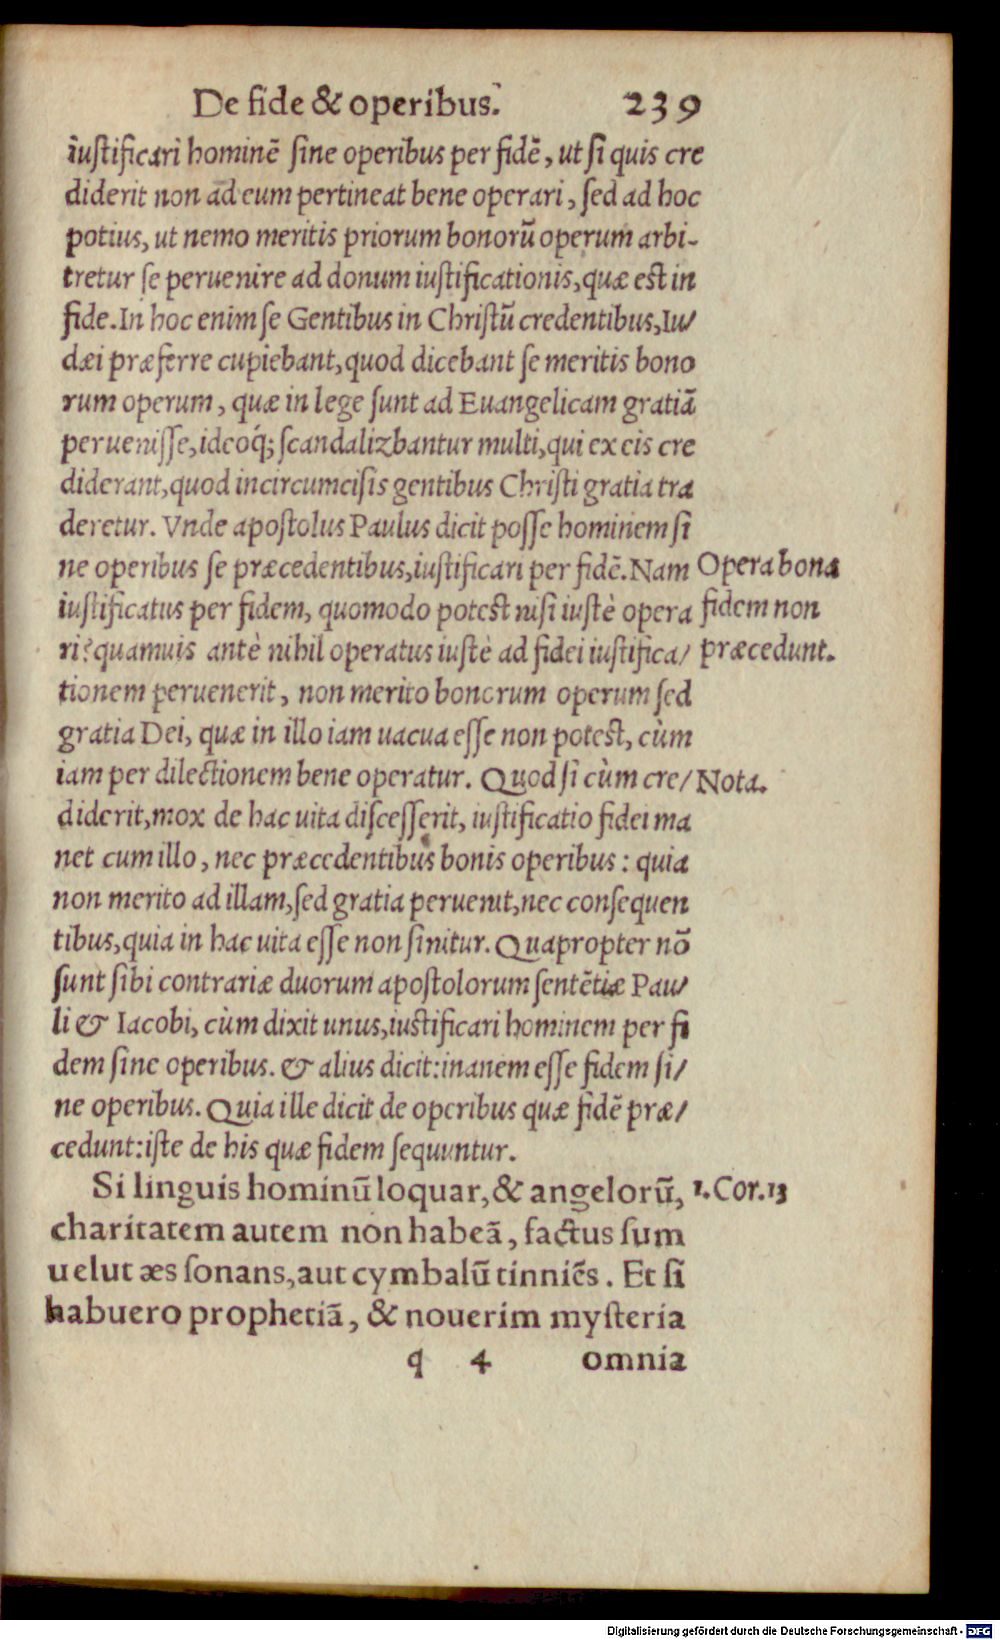 De fide & operibus. 239
iustificari hominē sine operibus per fidē, ut si quis cre
diderit non ad eum pertineat bene operari, sed ad hoc
potius, ut nemo meritis priorum bonorū operum arbi-
tretur se peruenire ad donum iustificationis, quæ est in
fide. In hoc enim se Gentibus in Christū credentibus, Iu/
dæi præferre cupiebant, quod dicebant se meritis bono
rum operum, quæ in lege sunt ad Euangelicam gratiā
peruenisse, ideoq́; scandalizbantur multi, qui ex eis cre
diderant, quod incircumcisis gentibus Christi gratia tra
deretur. Vnde apostolus Paulus dicit posse hominem si
ne operibus se præcedentibus, iustificari per fidē. Nam
Opera bona
iustificatus per fidem, quomodo potest nisi iustè opera
fidem non
ri? quamuis antè nihil operatus iustè ad fidei iustifica/
præcedunt.
tionem peruenerit, non merito bonorum operum sed
gratia Dei, quæ in illo iam uacua esse non potest, cùm
iam per dilectionem bene operatur. Quod si cùm cre/
Nota.
diderit, mox de hac uita discesserit, iustificatio fidei ma
net cum illo, nec præcedentibus bonis operibus: quia
non merito ad illam, sed gratia peruenit, nec consequen
tibus, quia in hac uita esse non sinitur. Quapropter nō
sunt sibi contrariæ duorum apostolorum sentētiæ Pau/
li & Iacobi, cùm dixit unus, iustificari hominem per fi
dem sine operibus. & alius dicit: inanem esse fidem si/
ne operibus. Quia ille dicit de operibus quæ fidē præ/
cedunt: iste de his quæ fidem sequuntur.
Si linguis hominū loquar, & angelorū,
1. Cor. 13
charitatem autem non habeā, factus sum
uelut æs sonans, aut cymbalū tinniēs. Et si
habuero prophetiā, & nouerim mysteria
q 4 omnia
Digitalisierung gefördert durch die Deutsche Forschungsgemeinschaft - DFG